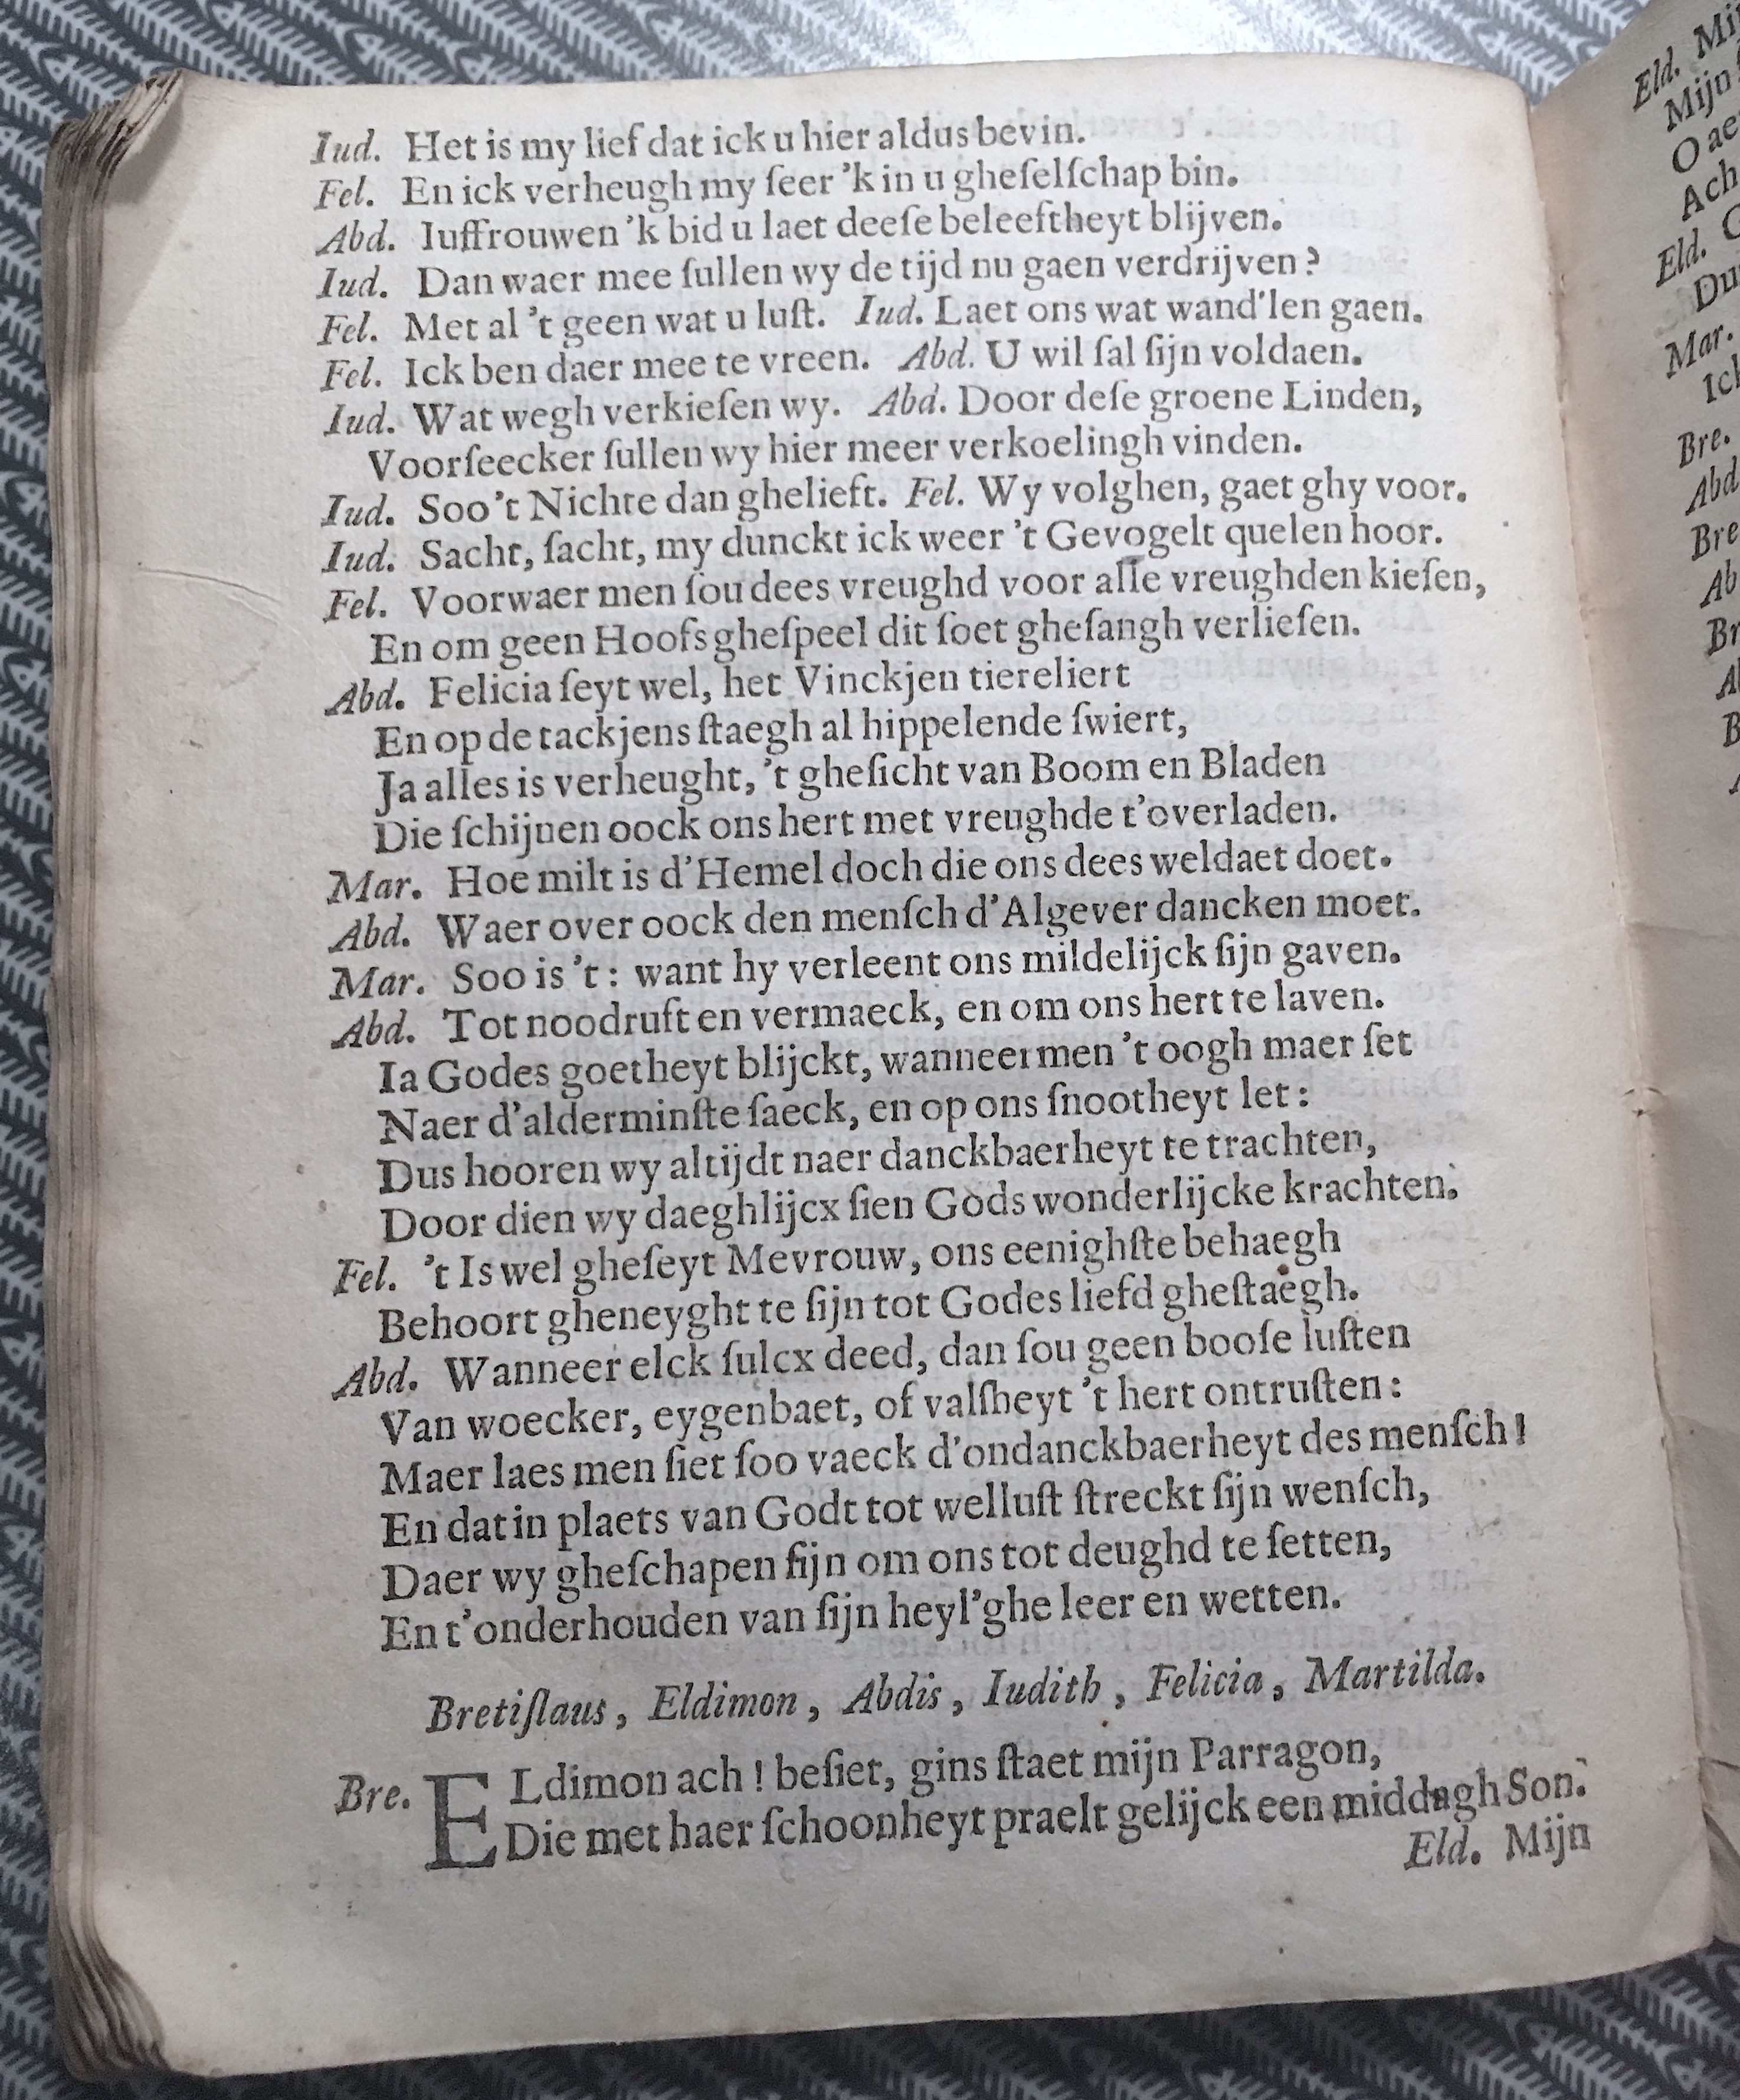 Iud. Het is my lief dat ick u hier aldus bevin.
Fel. En ick verheugh my ſeer 'k in u gheſelſchap bin.
Abd. Iuffrouwen 'k bid u laet deeſe beleeftheyt blijven.
Iud. Dan waer mee ſullen wy de tijd nu gaen verdrijven?
Fel. Met al 't geen wat u luſt. Iud. Laet ons wat wand'len gaen.
Fel. Ick ben daer mee te vreen. Abd. U wil ſal ſijn voldaen.
Iud. Wat wegh verkieſen wy. Abd. Door deſe groene Linden,
Voorſeecker ſullen wy hier meer verkoelingh vinden.
Iud. Soo 't Nichte dan ghelieft. Fel. Wy volghen, gaet ghy voor.
Iud. Sacht, ſacht, my dunckt ick weer 't Gevogelt quelen hoor.
Fel. Voorwaer men ſou dees vreughd voor alle vreughden kieſen,
En om geen Hoofs gheſpeel dit ſoet gheſangh verlieſen.
Abd. Felicia ſeyt wel, het Vinckjen tiereliert
En op de tackjens ſtaegh al hippelende ſwiert,
Ja alles is verheught, 't gheſicht van Boom en Bladen
Die ſchijnen oock ons hert met vreughde t'overladen.
Mar. Hoe milt is d'Hemel doch die ons dees weldaet doet.
Abd. Waer over oock den menſch d'Algever dancken moet.
Mar. Soo is 't: want hy verleent ons mildelijck ſijn gaven.
Abd. Tot noodruft en vermaeck, en om ons hert te laven.
Ia Godes goetheyt blijckt, wanneer men 't oogh maer ſet
Naer d'alderminſte ſaeck, en op ons ſnootheyt let:
Dus hooren wy altijdt naer danckbaerheyt te trachten,
Door dien wy daeghlijcx ſien Gods wonderlijcke krachten.
Fel. 't Is wel gheſeyt Mevrouw, ons eenighſte behaegh
Behoort gheneyght te ſijn tot Godes liefd gheſtaegh.
Abd. Wanneer elck ſulcx deed, dan ſou geen booſe luſten
Van woecker, eygenbaet, of valſheyt 't hert ontruſten:
Maer laes men ſiet ſoo vaeck d'ondanckbaerheyt des menſch!
En dat in plaets van Godt tot welluſt ſtreckt ſijn wenſch,
Daer wy gheſchapen ſijn om ons tot deughd te ſetten,
En t'onderhouden van ſijn heyl'ghe leer en wetten.
Bretiſlaus, Eldimon, Abdis, Iudith, Felicia, Martilda.
Bre. ELdimon ach! beſiet, gins ſtaet mijn Parragon,
Die met haer ſchoonheyt praelt gelijck een middagh Son.
Eld. Mijn
Eld.
Mijn
O
Ach
Eld.
Mar.
Bre.
Abd
Bre
Ab